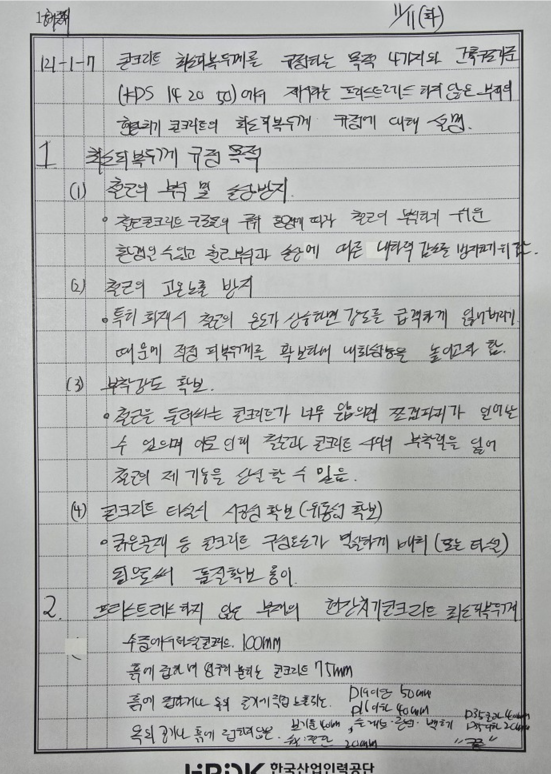 11/11 (화)
121-1-7 콘크리트 최소피복두께를 규정하는 목적 4가지와 건축구조기준
(KDS 14 20 50)에서 제시하는 프리스트레스 하지 않은 부재의
현장치기 콘크리트의 최소피복두께 규정에 대해 설명.
1 최소피복두께 규정 목적
(1) 철근의 부식 및 손상방지.
◦ 철근콘크리트 주위 환경에 따라 철근이 부식하기 쉬운
환경일 수 있고 철근부식과 손상에 따른 내하력 감소를 방지하기 위함.
(2) 철근의 고온노출 방지
◦ 특히 화재시 철근의 온도가 상승하면 강도를 급격하게 잃어버리기
때문에 적정 피복두께를 확보하여 내화성능을 높이고자 함.
(3) 부착강도 확보.
◦ 철근을 둘러싸는 콘크리트가 너무 얇으면 쪼갬파괴가 일어날
수 있으며 이로 인해 철근과 콘크리트 사이의 부착력을 잃어
철근이 제 기능을 상실 할 수 있음.
(4) 콘크리트 타설시 시공성 확보 (유동성 확보)
◦ 굵은골재 등 콘크리트 구성요소가 밀실하게 배치 (또는 타설)
됨으로써 품질확보 용이.
2. 프리스트레스하지 않은 부재의 현장치기콘크리트 최소피복두께
수중에서 타설 콘크리트. 100mm
흙에 접하여 영구히 묻히는 콘크리트 75mm
흙에 접하거나 옥외 공기에 직접 노출되는. D19이상 50mm
D16이하 40mm
옥외 공기나 흙에 접하지 않은. 보 기둥 40mm, 슬래브. 장선. 벽체 D35초과 40mm
D35이하 20mm
20mm "끝"
HRDK 한국산업인력공단